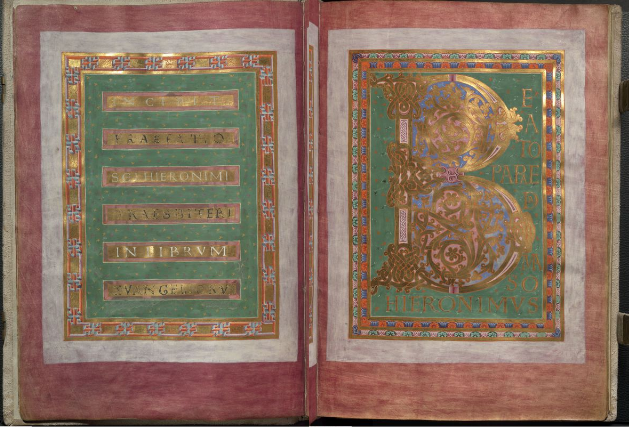 PRAEFATIO
SCI HIERONIMI
PRAESBITERI
IN LIBRVM
B
E
A
TO
PAPE
SO
HIERONIMVS